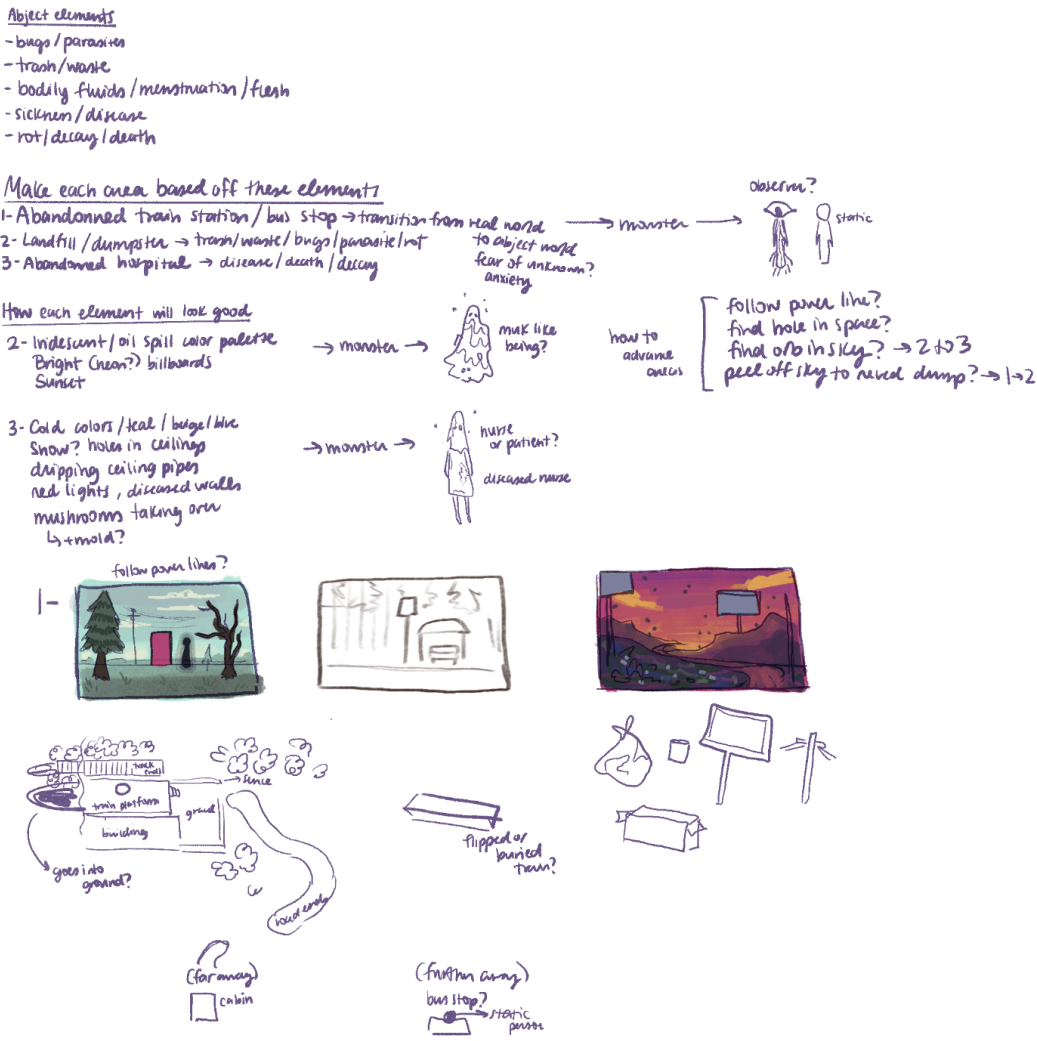 Abject elements
- bugs/parasites
- trash/waste
- bodily fluids/menstruation/flesh
- sickness/disease
- rot/decay/death
Make each area based off these elements
1- Abandonned train station/bus stop → transition from real world
to abject world
fear of unknown?
anxiety
→ monster →
observer?
static
2- Landfill/dumpster → trash/waste/bugs/parasite/rot
3- Abandonned hospital → disease/death/decay
How each element will look good
2- Iridescent/oil spill color palette
Bright (neon?) billboards
Sunset
→ monster →
muk like
being?
how to
advance
areas
follow power line?
find hole in space?
find orb in sky? → 2 to 3
peel off sky to reveal dump? → 1→2
3- Cold colors/teal/beige/blue
Snow? holes in ceilings
dripping ceiling pipes
red lights, diseased walls
mushrooms taking over
↳ + mold?
→ monster →
nurse
or patient?
diseased nurse
follow power lines?
1-
track
train platform
building
gravel
→ fence
goes into
ground?
road ends
flipped or
buried
train?
(far away)
cabin
(further away)
bus stop?
→ static
person